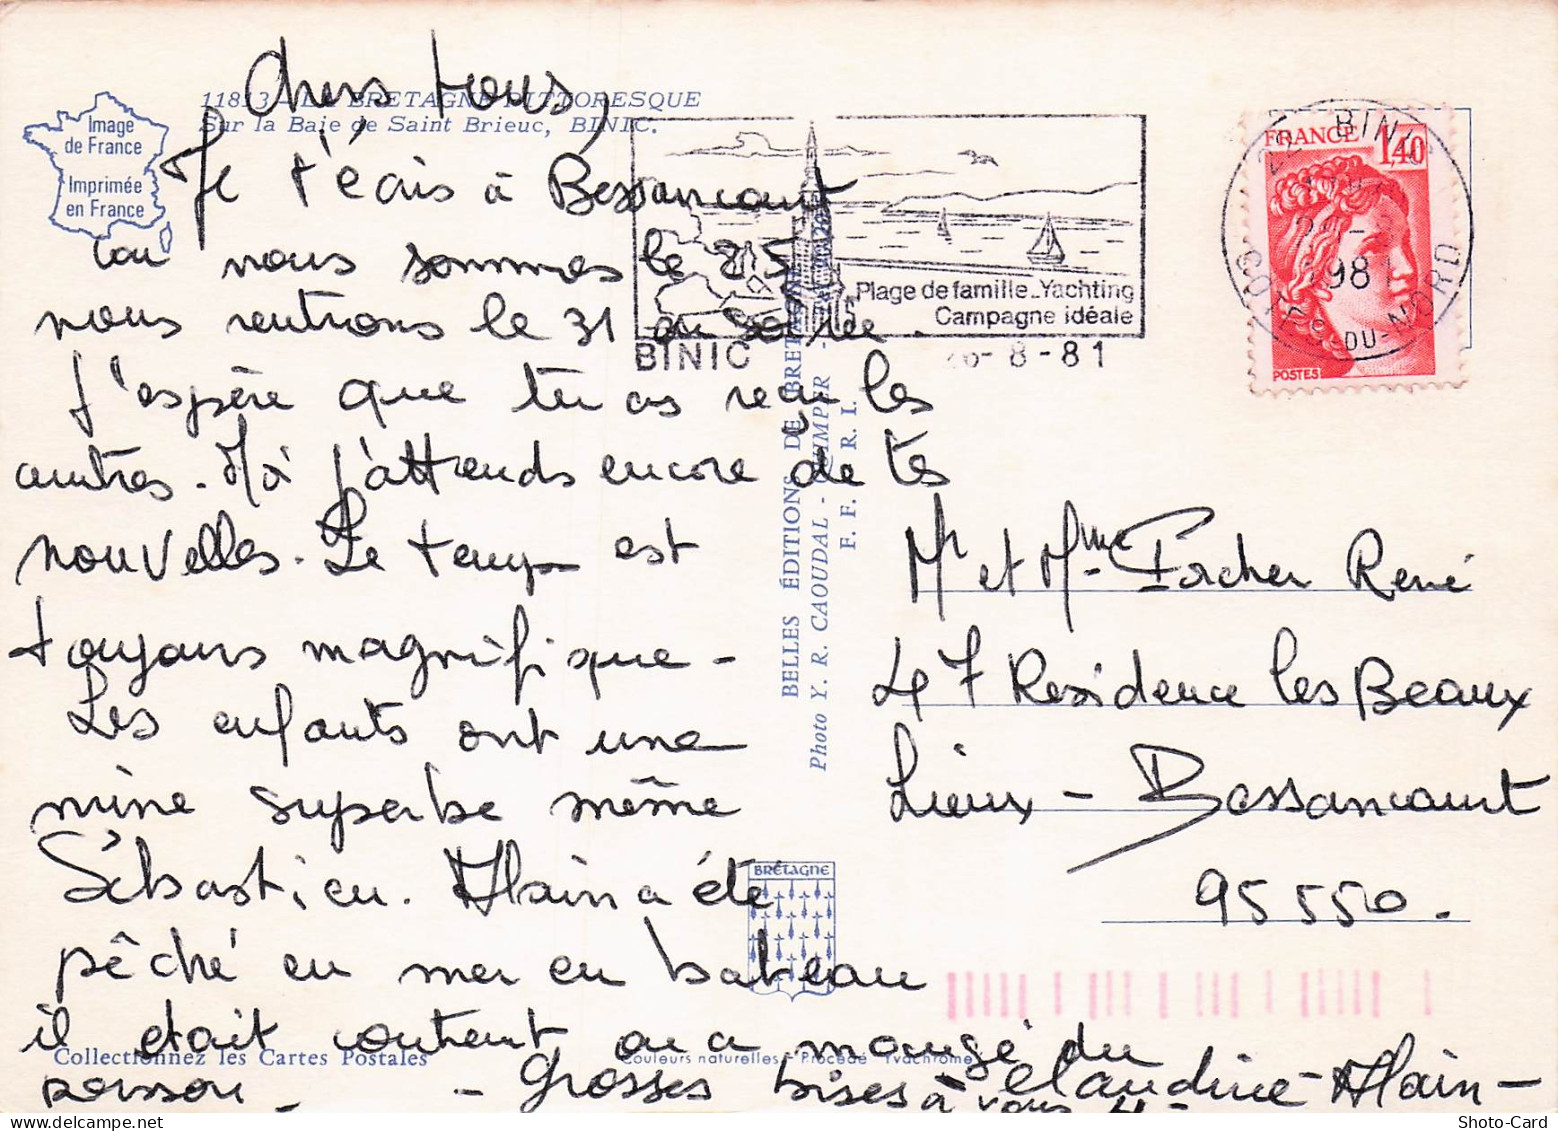 Chers tous,
11853 - LA BRETAGNE PITTORESQUE
Sur la Baie de Saint Brieuc, BINIC.
Image
de France
Imprimée
en France
Je t'écris à Bessancourt
car nous sommes le 25
nous rentrons le 31 au soirée
J'espère que tu as reçu les
autres. Moi j'attends encore de tes
nouvelles. Le temps est
toujours magnifique -
Les enfants ont une
mine superbe même
Sébastien. Alain a été
pêché en mer en bateau
il était content on a mangé du
poisson - Grosses bises à vous 4 - Claudine - Alain -
Collectionnez les Cartes Postales
Couleurs naturelles - Procédé Yvachrome
BELLES ÉDITIONS DE BRETAGNE
Photo Y. R. CAOUDAL - QUIMPER -
F. F. F. R. I.
BRETAGNE
Plage de famille_Yachting
Campagne idéale
BINIC 26-8-81
22 BINIC
1981
CÔTES-DU-NORD
FRANCE 1,40
POSTES
Mr et Mme Porcher René
47 Residence les Beaux
Lieux - Bessancourt
95550.
Shoto-Card